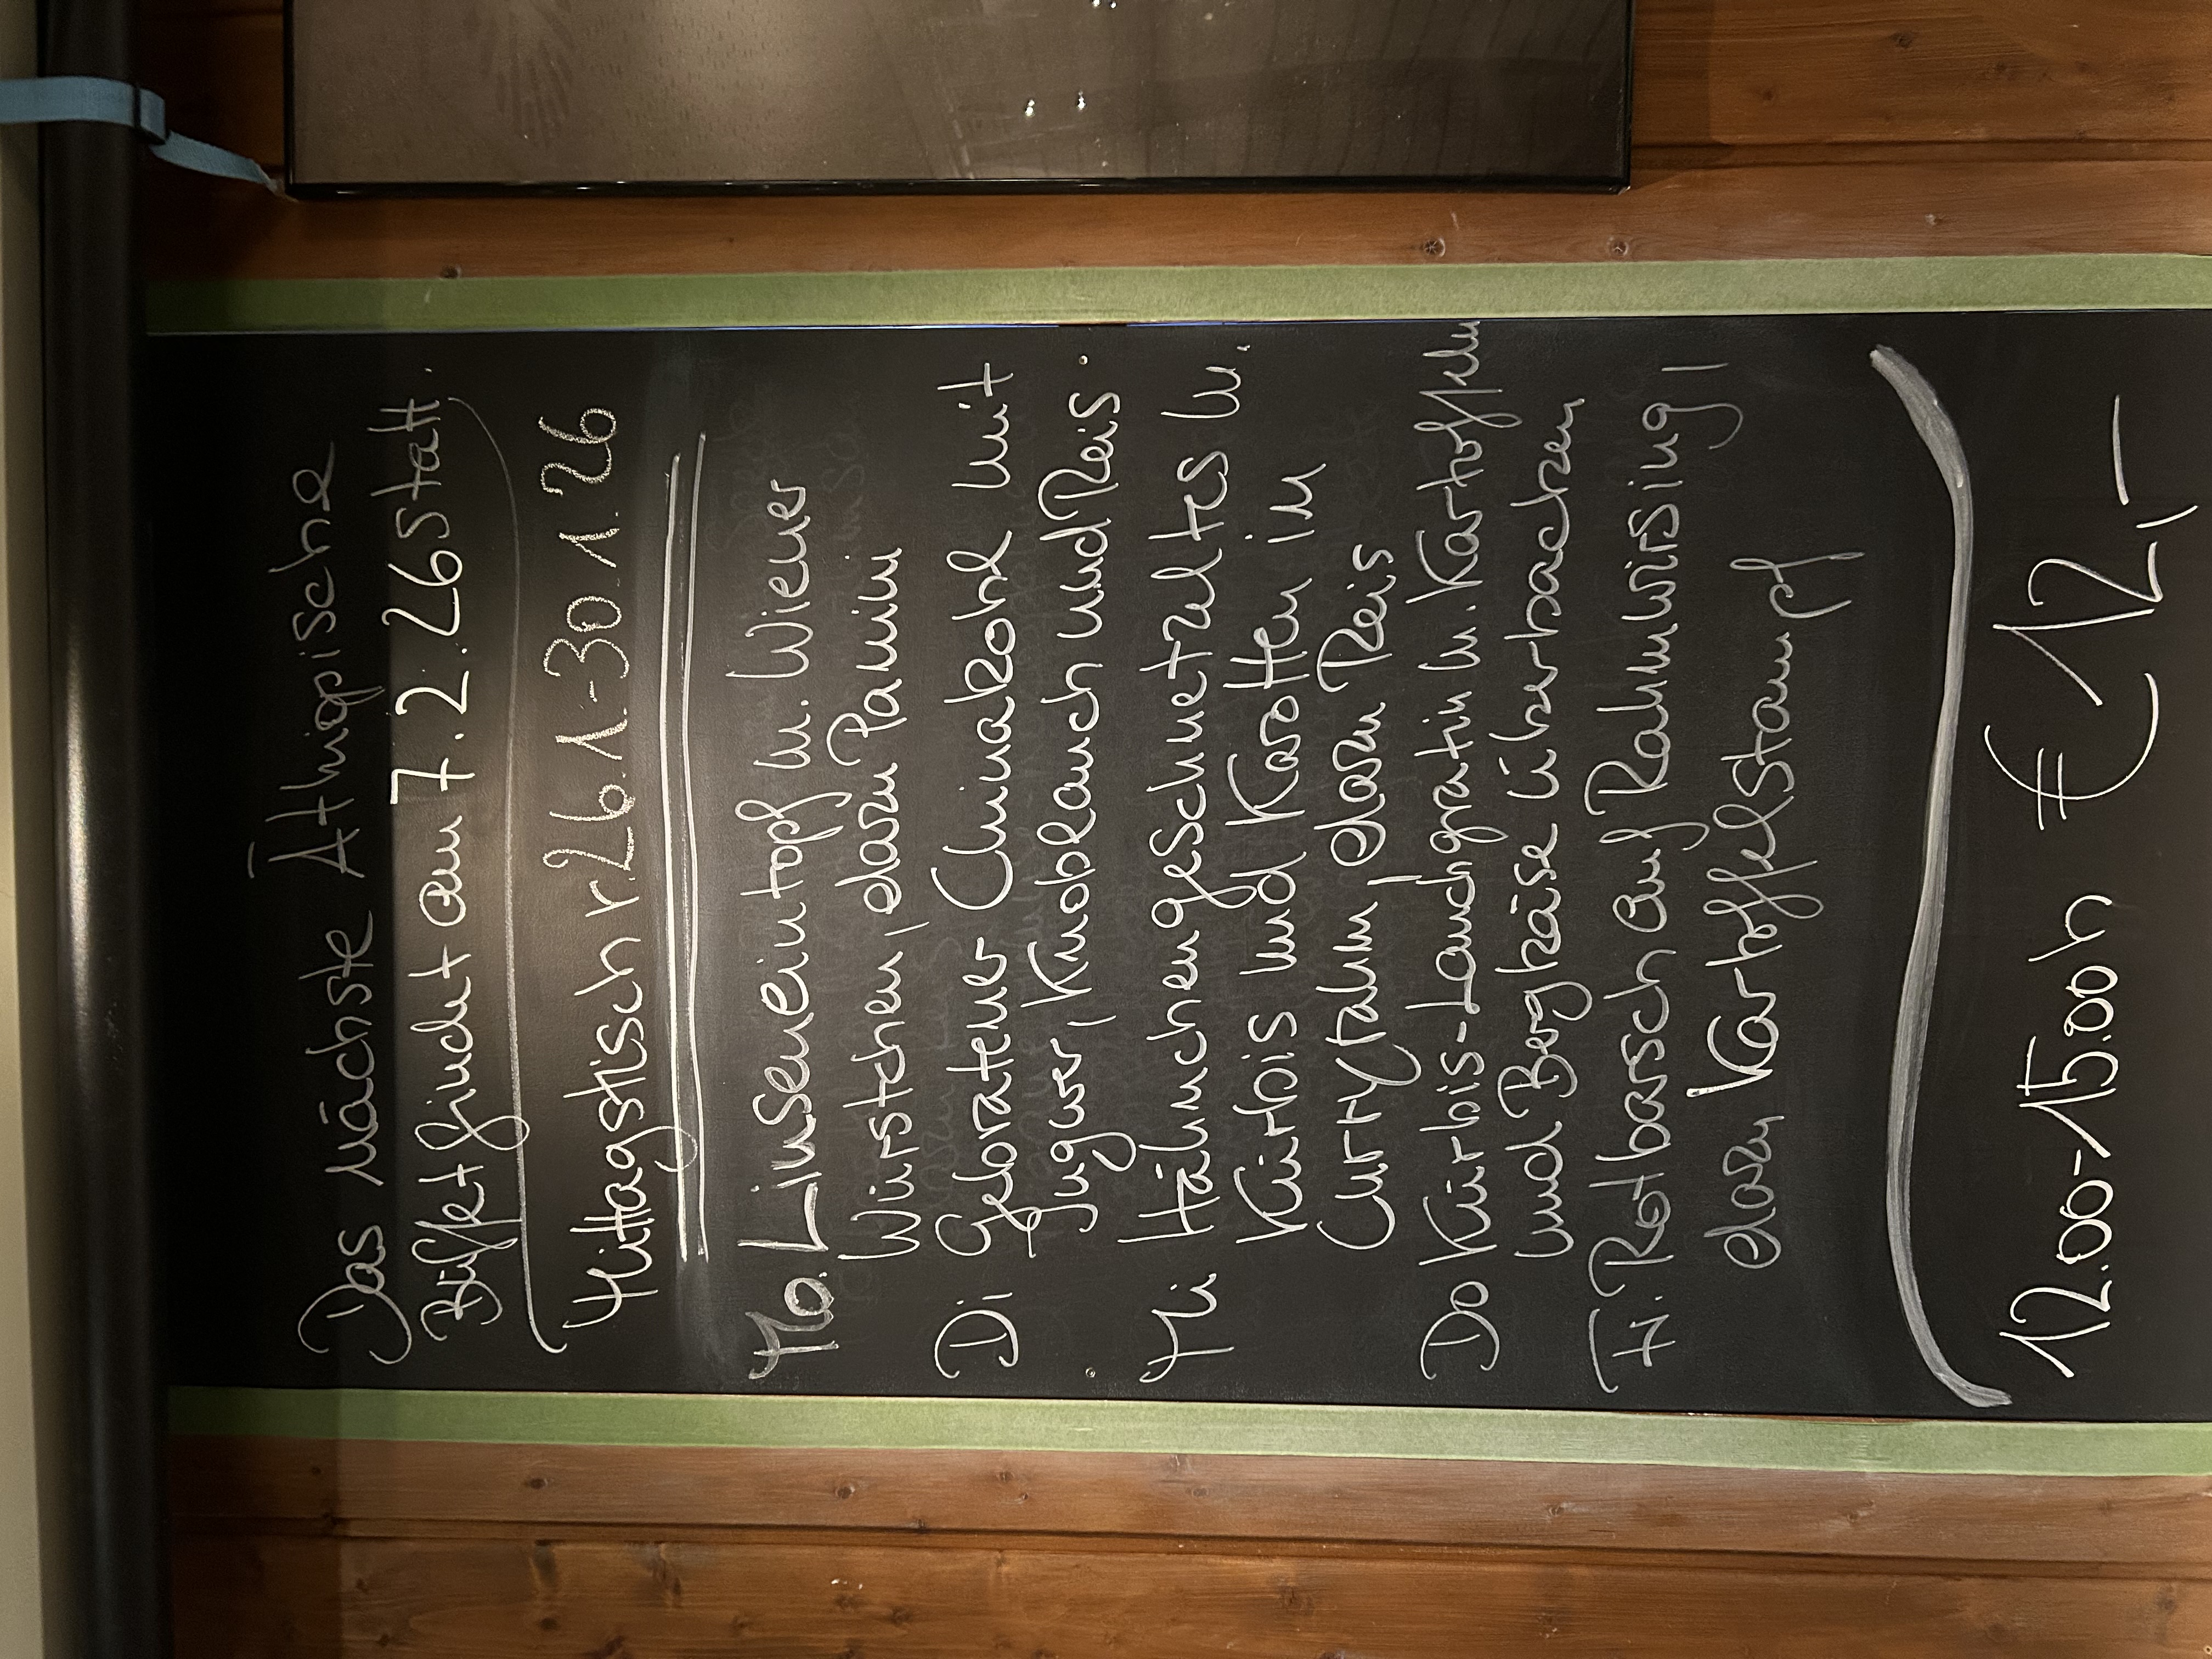 Das nächste Äthiopische
Büffet findet am 7.2.26 statt.
Mittagstisch v. 26.1.-30.1.26
Mo. Linseneintopf m. Wiener
Würstchen, dazu Panini
Di Gebratener Chinakohl mit
Ingwer, Knoblauch und Reis.
Mi Hähnchengeschnetzeltes m.
Kürbis und Karotten in
Curryrahm, dazu Reis
Do Kürbis-Lauchgratin m. Kartoffeln
und Bergkäse überbacken
Fr. Rotbarsch auf Rahmwirsing,
dazu Kartoffelstampf
12.00-15.00h € 12,-